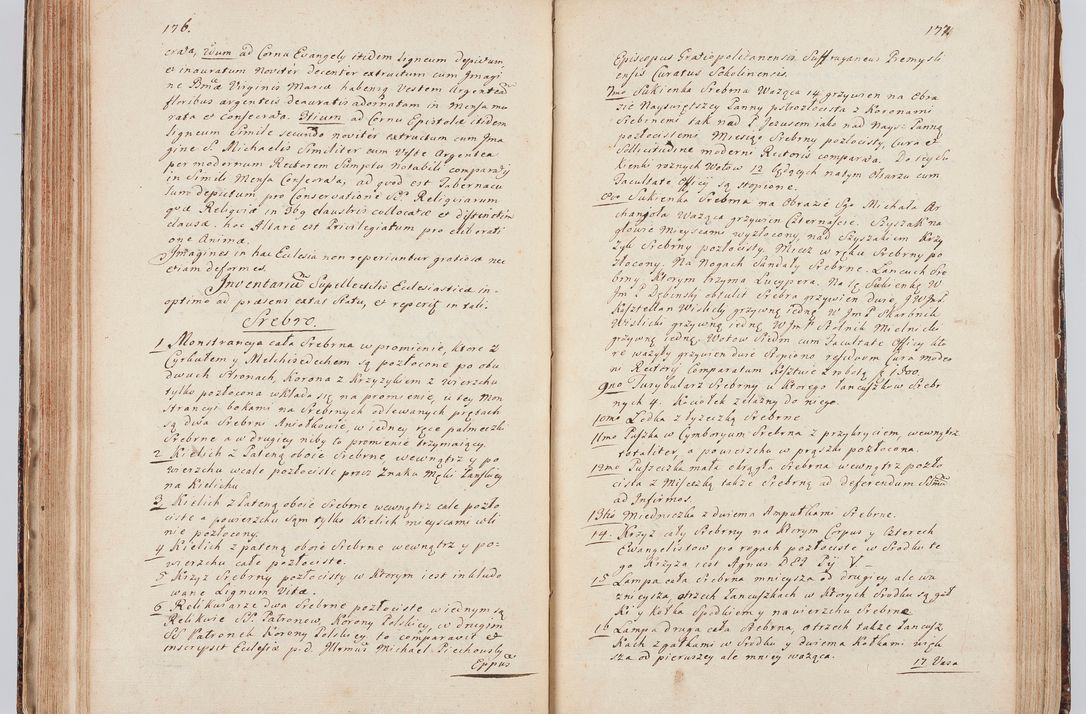 176.
crata, IIdum ad Cornu Evangely itidem ligneum depictum
et inauratum noviter decenter extructum cum Imagi
ne Bmæ Virginis Mariæ habens Vestem Argenteam
floribus argenteis deauratis adornatam in Mensa mu
rata et Consecrata. IIItium ad Cornu Epistolæ itidem
ligneum Simile secundo noviter extructum cum Ima
gine S. Michaelis Similiter cum Veste Argentea
per modernum Rectorem Sumptu Notabili comparata
in Simili Mensa Consecrata, ad quod est Tabernacu
lum depictum pro Conservatione SS. Reliquiarum
quæ Reliquiæ in 369 claustris collocatæ et distinctim
clausæ. hoc Altare est Privilegiatum pro liberati
one Animæ.
Imagines in hac Ecclesia non reperiuntur gratiosæ nec
etiam deformes.
Inventarium Supellectilis Ecclesiasticæ in-
optimo ad præsens extat Statu, et reperitur in tali.
Srebro.
1 Monstrancya cała Srebrna w promienie, ktore z
Cyrkułem y Melchizedechem są pozłocone po obu
dwuch Stronach, Korona z Krzyżykiem z wierzchu
tylko pozłocona wkłada się na promienie, u tey Mon
strancyi bokami na Srebrnych odlewanych prętach
są dwa Srebrni Aniołkowie, w iedney ręce palmeczki
Srebrne a w drugiey niby to promienie trzymaiący.
2. Kielich z Pateną oboie Srebrne, wewnątrz y po
wierzchu wcale pozłociste przez Znaku Męki Pańskiey
na Kielichu.
3 Kielich z Pateną oboie Srebrne wewnątrz całe pozło
ciste a powierzchu sam tylko Kielich mieyscami wśli
nie pozłocony.
4 Kielich z pateną oboie Srebrne wewnątrz y po-
wierzchu całe pozłociste.
5 Krzyż Srebrny pozłocisty w Ktorym iest inkludo
wane Lignum Vitæ.
6 Relikwiarze dwa Srebrne pozłociste w iednym są
Relikwie SS. Patronow, Korony Polskiey, w drugim
SS Patronek Korony Polskiey, to comparavit et
inscripsit Ecclesiæ p. d. Illrmus Michael Piechowsky
Eppus
177.
Episcopus Gratiopolitanensis Suffraganeus Premysli
ensis Curatus Sokolinensis.
7mo Sukienka Srebrna Ważąca 14 grzywien na Obra
zie Nayświętszey Panny półzłocista z Koronami
Srebrnemi tak nad P. Jezusem iako nad Nays: Panną
pozłocistemi Miesiąc Srebrny pozłocisty, Cura et
Sollicitudine moderni Rectoris comparata. Do tey Su
kienki roznych Wotow 12 będących natym Ołtarzu cum
Facultate Officy są stopione.
8vo Sukienka Srebrna na Obrazie Sgo Michała Ar
changoła Ważąca grzywien Czternaście. Szyszak na
głowie Mieyscami wyzłocony, nad Szyszakiem Krzy
żyk Srebrny pozłocisty. Miecz w ręku Srebrny po
złocony. Na Nogach Sandały Srebrne. Lancuch Sre
brny, Ktorym trzyma Lucypera. Na tę Sukienkę W
Jm P. Dębinsky obtulit Srebra grzywien dwie, JW JmP
Kasztellan Wislicky grzywnę iednę W JmP Skarbnik
Wislicki grzywnę iednę W JmP Stolnik Mielnicki
grzywnę iednę. Wotow Siedm cum Facultate Officy kto
re ważyły grzywien dwie stopiono, residuum Cura moder
ni Rectory Comparatum Kosztuie z robotą f 1800.
9no Turybularz Srebrny u Ktorego łancuszkow Srebr
nych 4. Kociołek żelazny do niego.
10mo Łodka z łyżeczką Srebrne.
11mo Puszka w Cymboryum Srebrna z przykryciem, wewnątrz
totaliter, a powierzchu w prążki pozłocona.
12mo Puszeczka mała okrągła Srebrna wewnątrz pozło
cista z Miseczką także Srebrną ad deferendum SSmum
ad Infirmos.
13tio Miedniczka z dwiema Ampułkami Srebrne.
14. Krzyż cały Srebrny na Ktorym Corpus y Czterech
Ewangelistow po rogach pozłociste w Srodku te
go Krzyża iest Agnus DEI Pij V.
15 Lampa cała Srebrna mnieysza od drugiey ale wa
znieysza, otrzech Łancuszkach w Ktorych Srodku są gał
ki y kołka Spodkiem y nawierzchu Srebrne.
16 Lampa druga cała Srebrna, o trzech także łancusz
kach z gałkami w Srodku y dwiema Kołkami więk
sza od pierwszey ale mniey ważąca.
17 Vasa